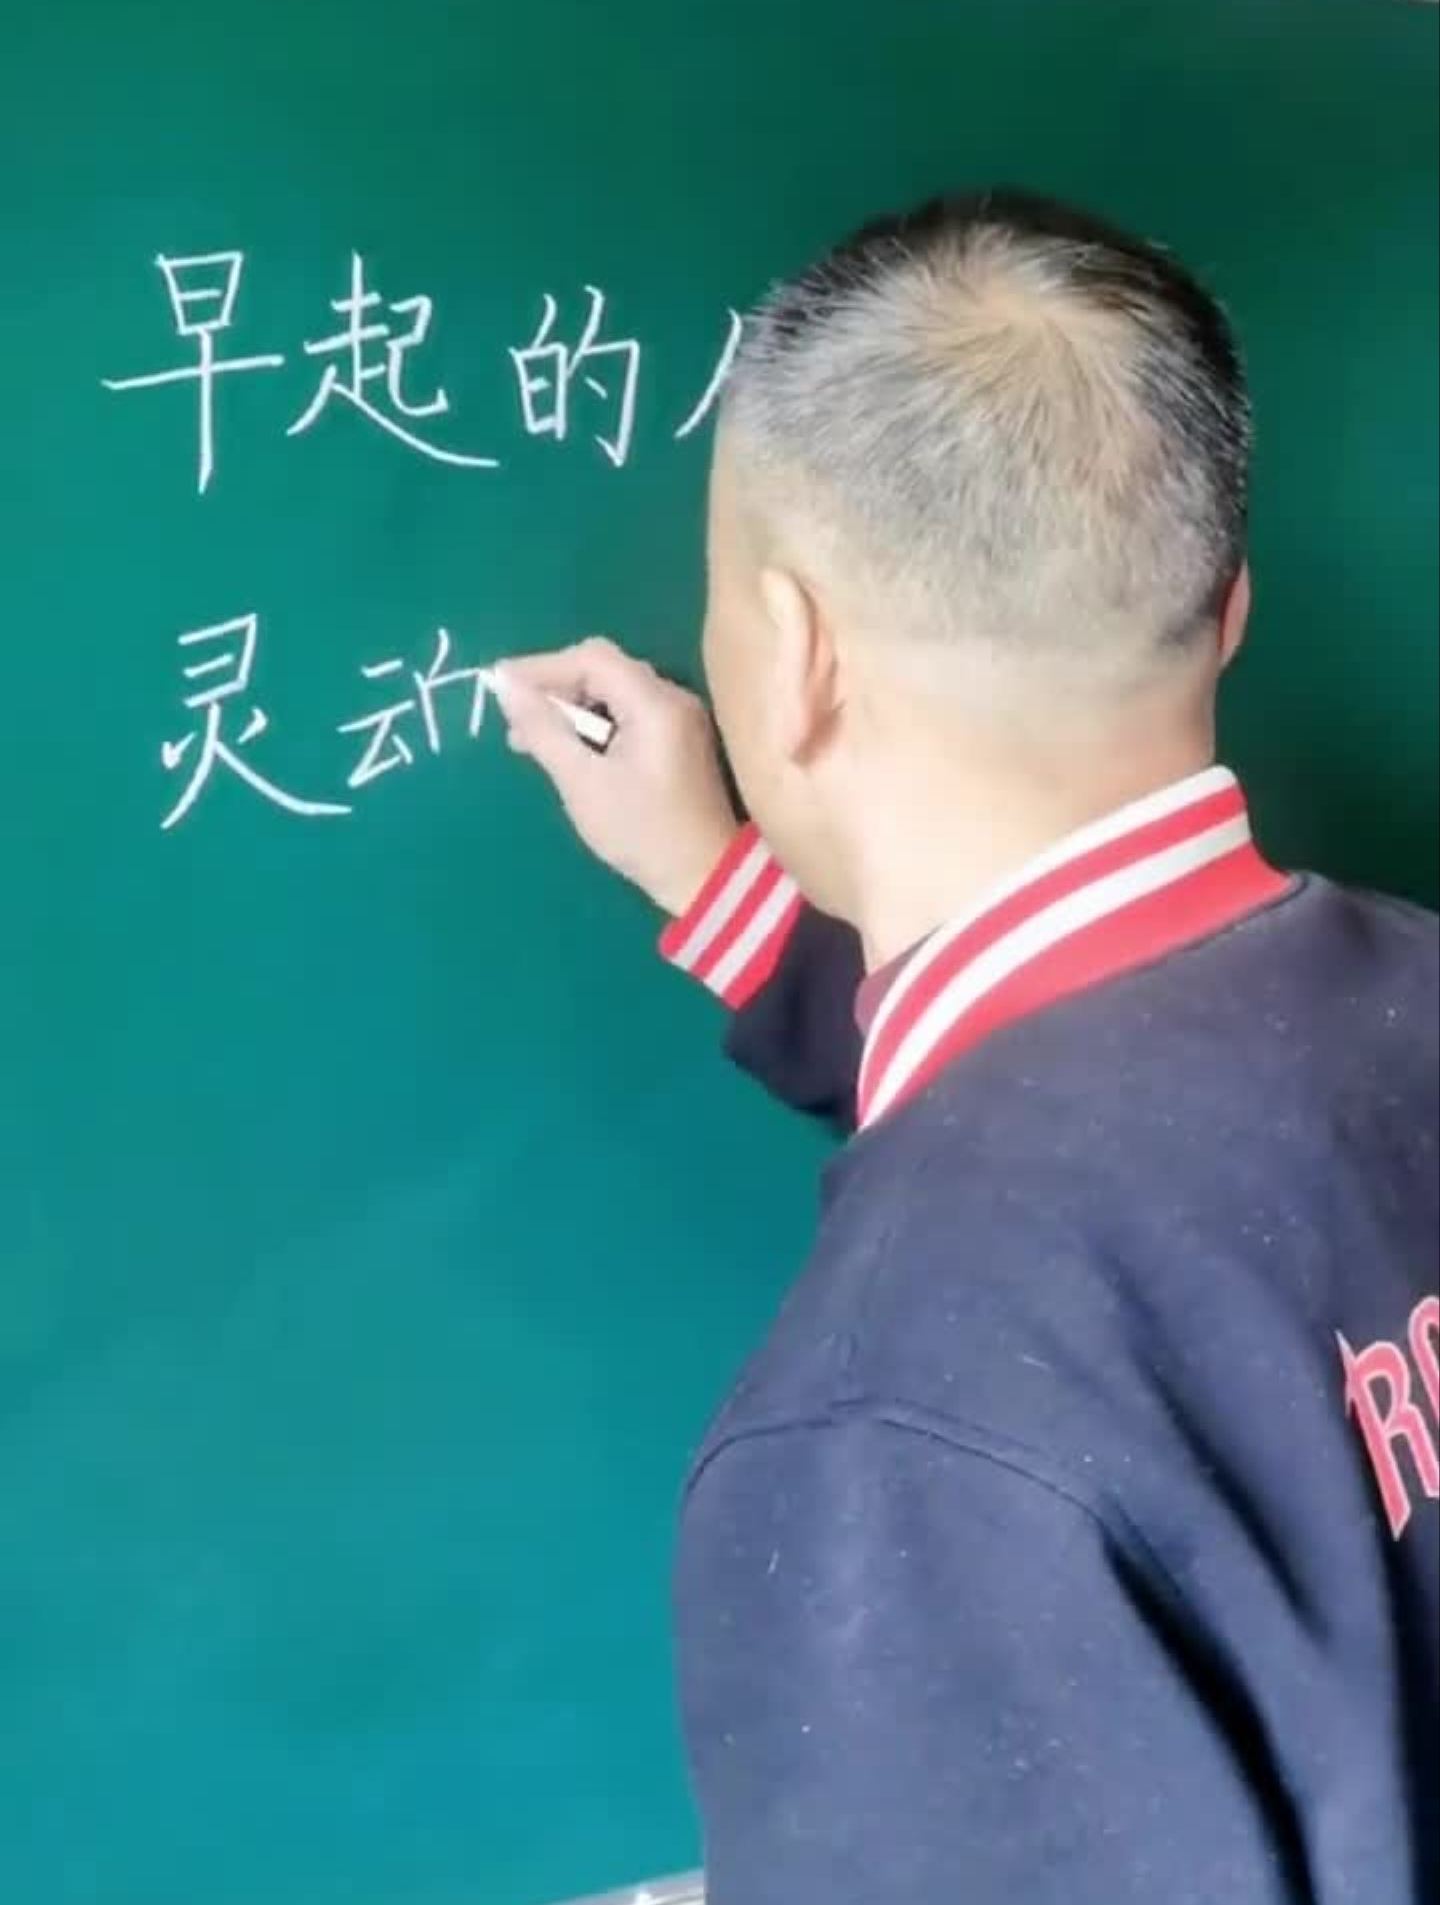 早起的
灵动
R